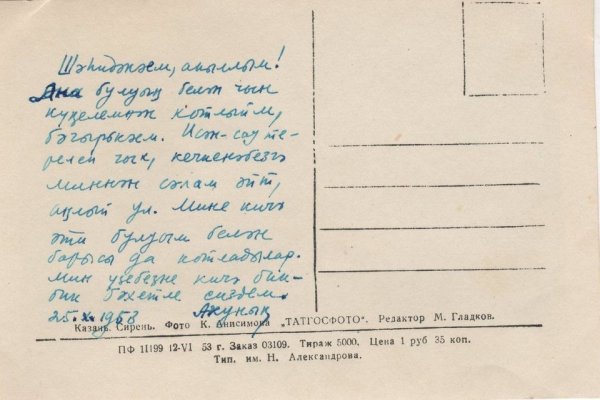 Шәһидәкәем, акыллым!
Ана булуың белән чын
күңелемнән котлыйм,
бәгырькәем. Исән-сау те-
релеп чык, кечкенәбезгә
миннән сәлам әйт,
аңлый ул. Мине кичә
әти булуым белән
барысы да котладылар.
Мин үзебезне кичә бик-
бик бәхетле сиздем.
25.X.1953
Казань. Сирень. Фото К. Анисимова „ТАТГОСФОТО“. Редактор М. Гладков.
ПФ 11199 12-VI 53 г. Заказ 03109. Тираж 5000. Цена 1 руб 35 коп.
Тип. им. Н. Александрова.